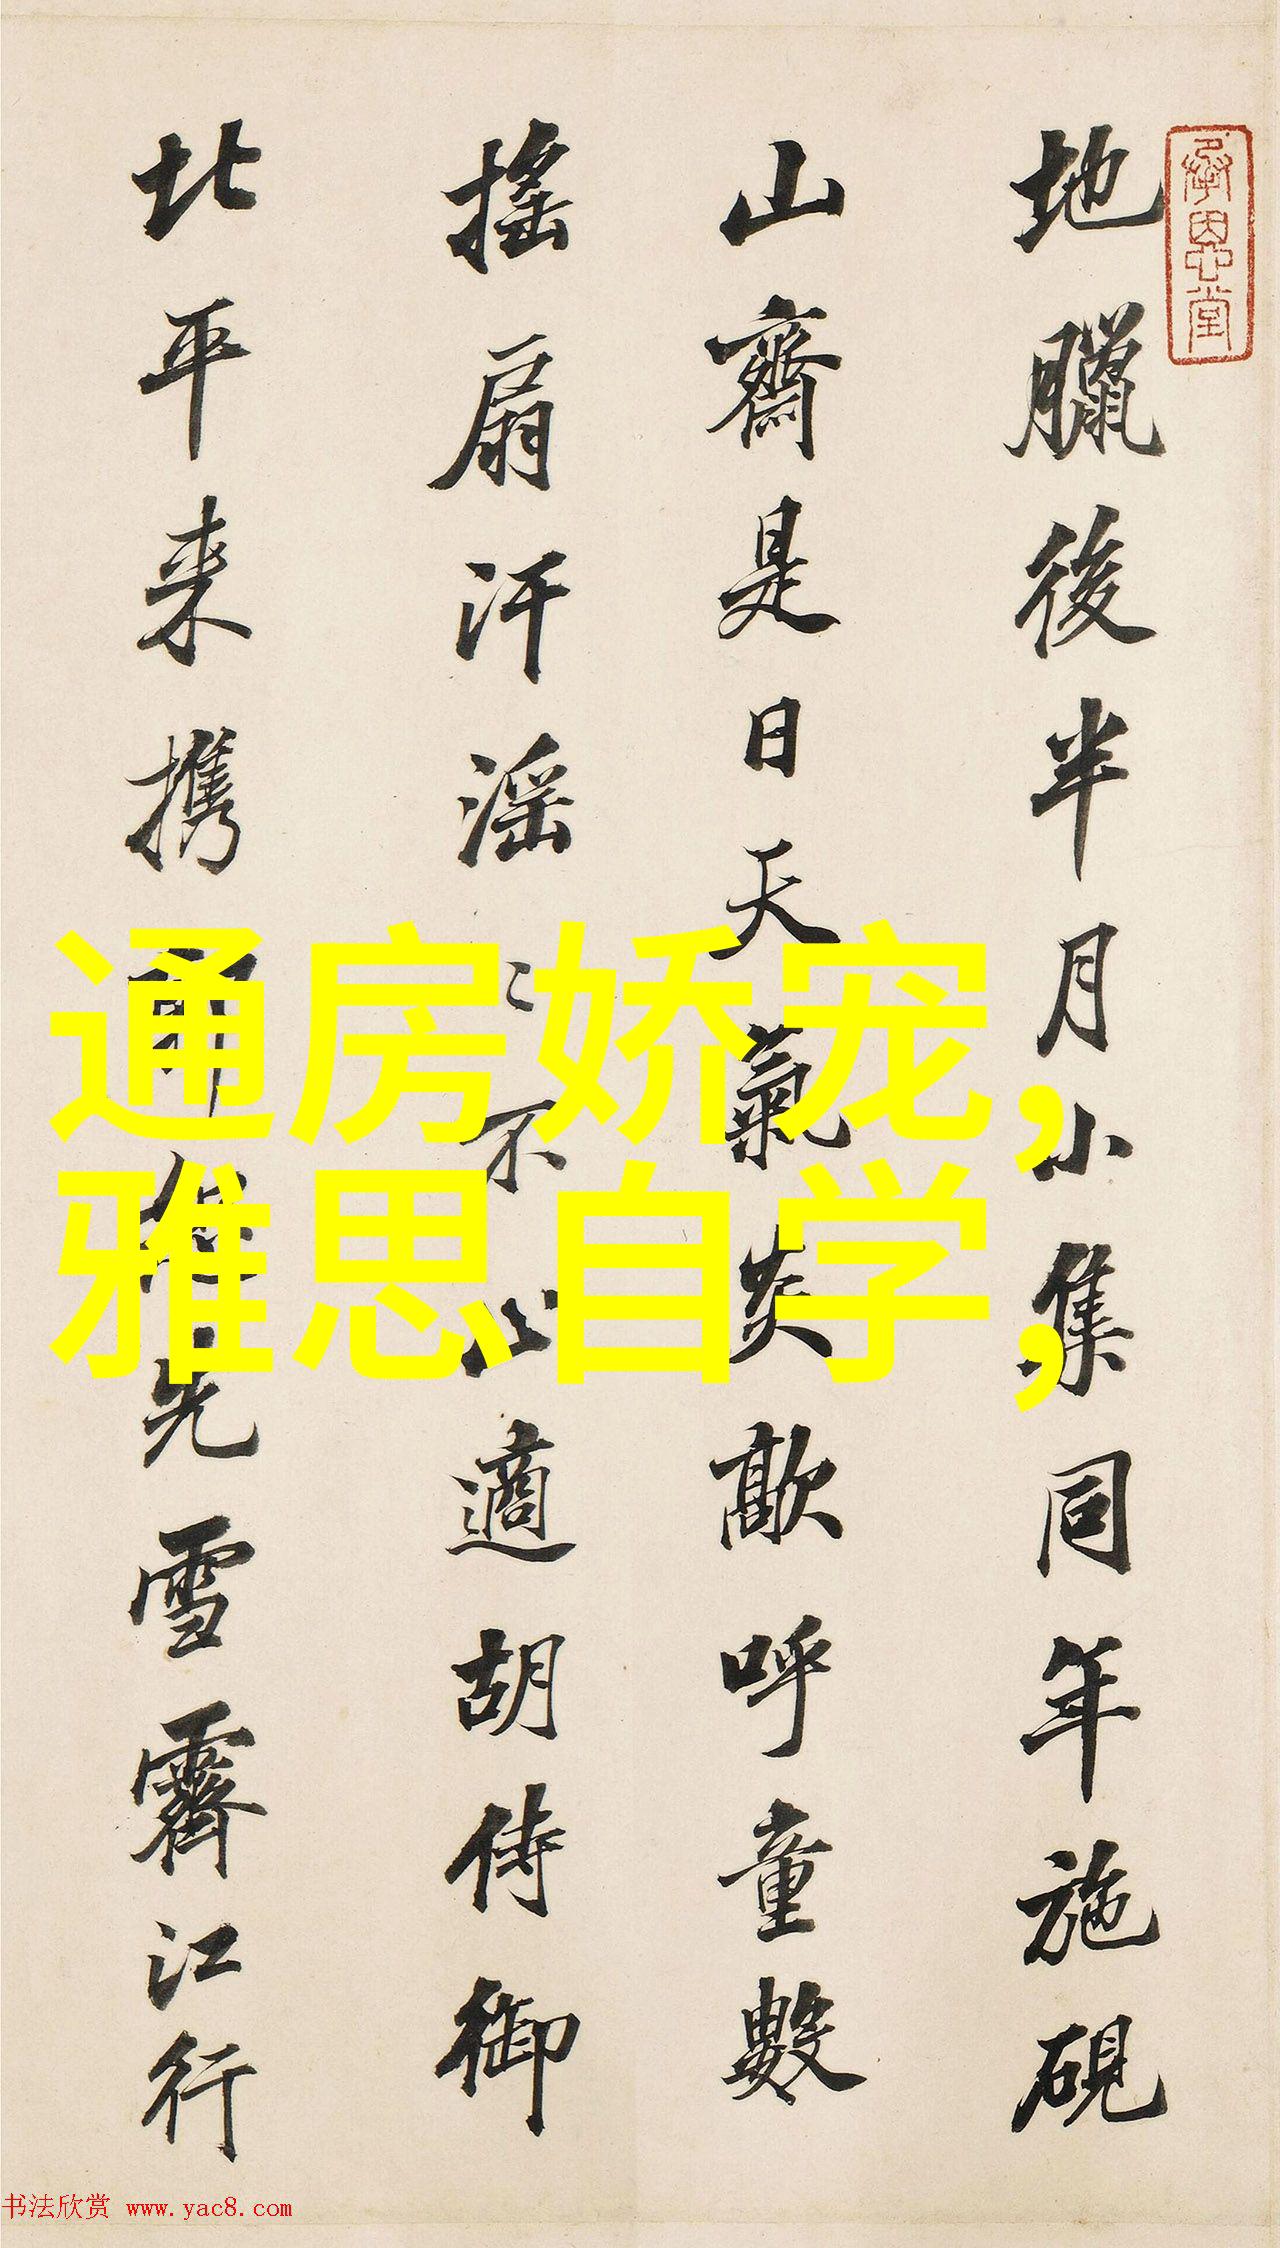 承恩堂
地臘後半月小集同年施硯
山齋是日天氣炎歊呼童數
搖扇汗滛〻不止適胡侍御
北平来携雪霽江行
通房娇宠，
雅思自学，
书法欣赏 www.yac8.com